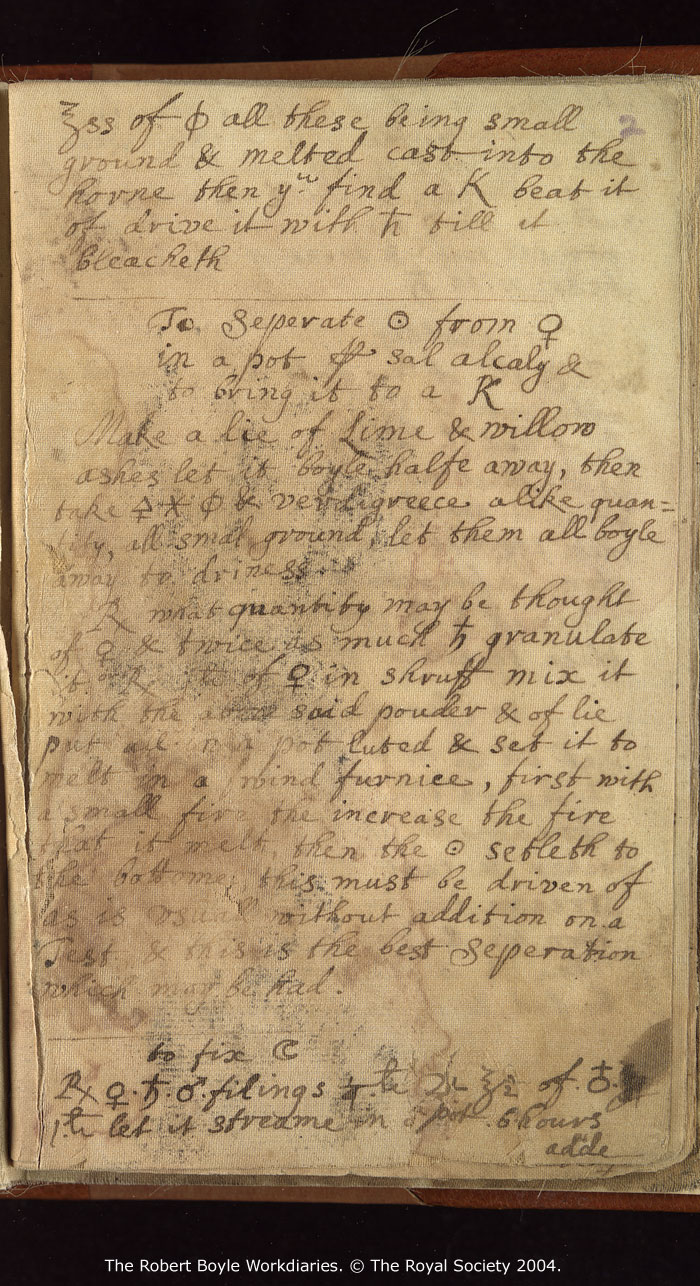 ℥ss of 🜕 all these being small
ground & melted cast into the
horne then yᵘ find a K beat it
of drive it with ♄ till it
bleacheth
2
To Seperate ☉ from ♀
in a pot sal alcaly &
to bring it to a K
Make a lie of Lime & willow
ashes let it boyle halfe away, then
take 🜍 🜹 🜕 & verdigreece alike quan=
tity, all smal ground, let them all boyle
away to driness.
℞ what quantity may be thought
of ♀ & twice as much ♄ granulate
it. ℞ of ♀ in shruff mix it
with the said pouder & of lie
put in pot luted & set it to
melt in a wind furnice, first with
a small fire the increase the fire
that it melt, then the ☉ setleth to
the bottome, this must be driven of
as is usuall without addition on a
Test & this is the best Seperation
which may be had.
to fix ☾
℞ ♀. ♄. ♂. filings ♃ ℥ of ♁
1 let it streame in a pot 6 hours
adde
The Robert Boyle Workdiaries. © The Royal Society 2004.